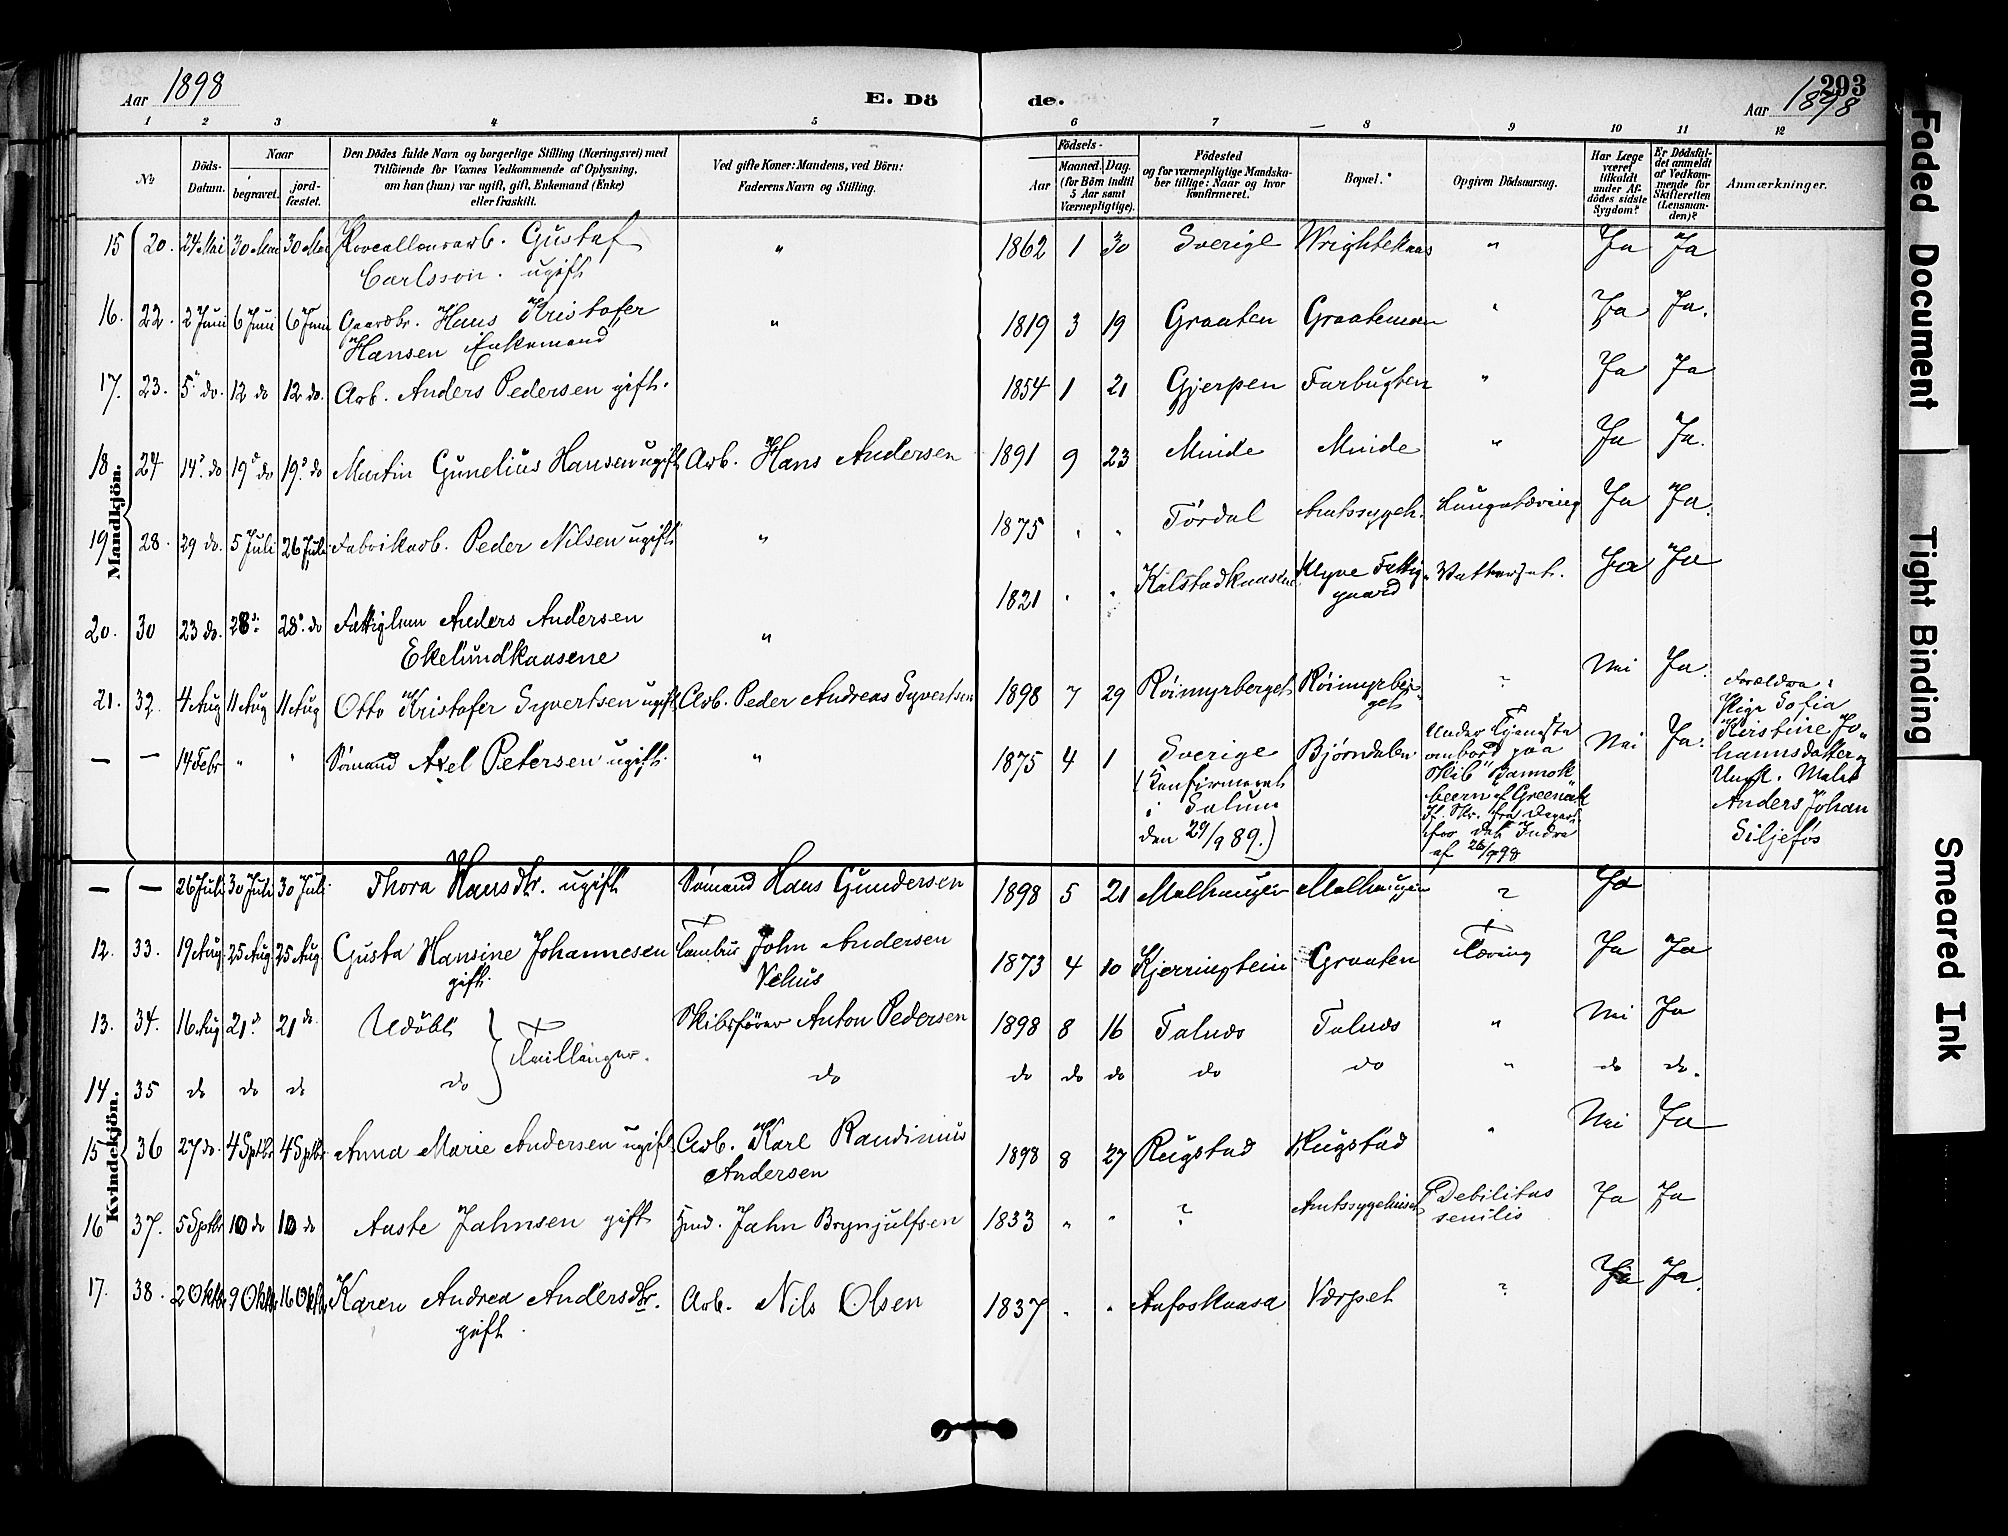 293
Aar 1898
E. Dö
de.
Aar 1898
1 2 3 4 5 6 7 8 9 10 11 12
No
Döds-
Datum.
Naar
begravet.
jord-
fæstet.
Den Dödes fulde Navn og borgerlige Stilling (Næringsvei) med
Tilföiende for Voxnes Vedkommende af Oplysning,
om han (hun) var ugift, gift, Enkemand (Enke)
eller fraskilt.
Ved gifte Koner: Mandens, ved Börn:
Faderens Navn og Stilling.
Födsels-
Aar
Maaned. Dag.
(for Börn indtil
5 Aar samt
Værnepligtige).
Födested
og for værnepligtige Mandska-
ber tillige: Naar og hvor
konfirmeret.
Bopæl.
Opgiven Dödsaarsag.
Har Læge
været
tilkaldt
under Af-
dödes sidste
Sygdom?
Er Dödsfal-
det anmeldt
af Vedkom-
mende for
Skifteretten
(Lensman-
den)?
Anmærkninger.
Mandkjön.
15 20. 24 Mai 30 Mai 30 Mai Gustaf " 1862 1 30 Sverige " Ja Ja
Carlsson. ugift
16. 22. 2 Juni 6 Juni 6 Juni Gaardbr. Hans Kristofer " 1819 3 19 Graaten Graatenmoen " Ja Ja.
Hansen Enkemand
17. 23. 5 do. 12 do 12 do. Arb. Anders Pedersen gift. 1854 1 21 Gjerpen Farbugten " Ja Ja
18 24 14 do 19 do 19 do Martin Gunelius Hansen ugift Arb. Hans Andersen 1891 9 23 Minde Minde " Ja Ja.
19 28. 29 do. 5 Juli 26 Juli Fabrikarb. Peder Nilsen ugift " 1875 " " Tørdal Amtssygeh. Lungetæring Ja Ja.
20. 30 23 do. 28 do 28 do Fattiglem Anders Andersen " 1821 " " Klyve Fattig- Vattersot. Ja Ja
gaard
Ekelundkaasene
21. 32. 4 Aug 11 Aug 11 Aug Otto Kristofer Syvertsen ugift Arb. Peder Andreas Syvertsen 1898 7 29 Röimyrberget Röimyrber- ? Nei Ja.
get
Forældre:
Pige Sofia
Kirstine Jo-
hannsdatter og
Ungk. Maler
Anders Johan
Siljefos
— — 14 Febr " " Sömand Axel Petersen ugift. " 1875 4 1 Sverige Bjørndalen Nei Ja.
(Konfirmeret
i Solum
den 29/9 89.)
Under Tjeneste
ombord paa
Skib "Bannock-
beern" af Greenock
If. Skr. fra Depart.
for det Indre
af 26/7 98
Kvindekjön.
— — 26 Juli 30 Juli 30 Juli. Thora Hansdtr. ugift Sömand Hans Gundersen 1898 5 21 Melhaugen Melhaugen ? Ja
12. 33. 19 Aug 25 Aug 25 Aug Gusta Hansine Johannesen Tømbr. John Andersen 1873 4 10 Kjerringtein Graaten Tæring Ja Ja
gift. Vehus
13. 34. 16 Aug 21 do 21 do Udöbt Skibsfører Anton Pedersen 1898 8 16 Falnes Falnes " Nei Ja
Tvillinger.
14 35 do do do do do do do do do do " do do.
15 36 27 do. 4 Sptbr 4 Sptbr Anna Marie Andersen ugift Arb. Karl Randinius 1898 8 27 Rugstad Rugstad " Nei Ja
Andersen
16 37. 5 Sptbr 10 do 10 do Aaste Jahnsen gift Jahn Brynjulfsen 1833 " " ? Amtssygehuset Debilitas Ja Ja
senilis
17. 38. 2 Oktbr 9 Oktbr 16 Oktbr Karen Andrea Andersdtr. Arb. Nils Olsen 1837 " " Aafoskaasa Værpet ? Ja Ja.
gift.
Faded Document
Tight Binding
Smeared Ink